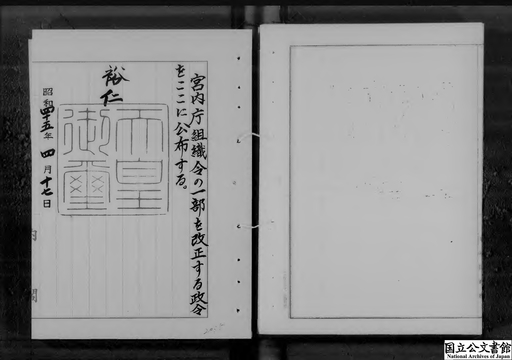 宮内庁組織令の一部を改正する政令
をここに公布する。
裕仁
天皇
御璽
昭和四十五年四月十七日
内
閣
国立公文書館
National Archives of Japan